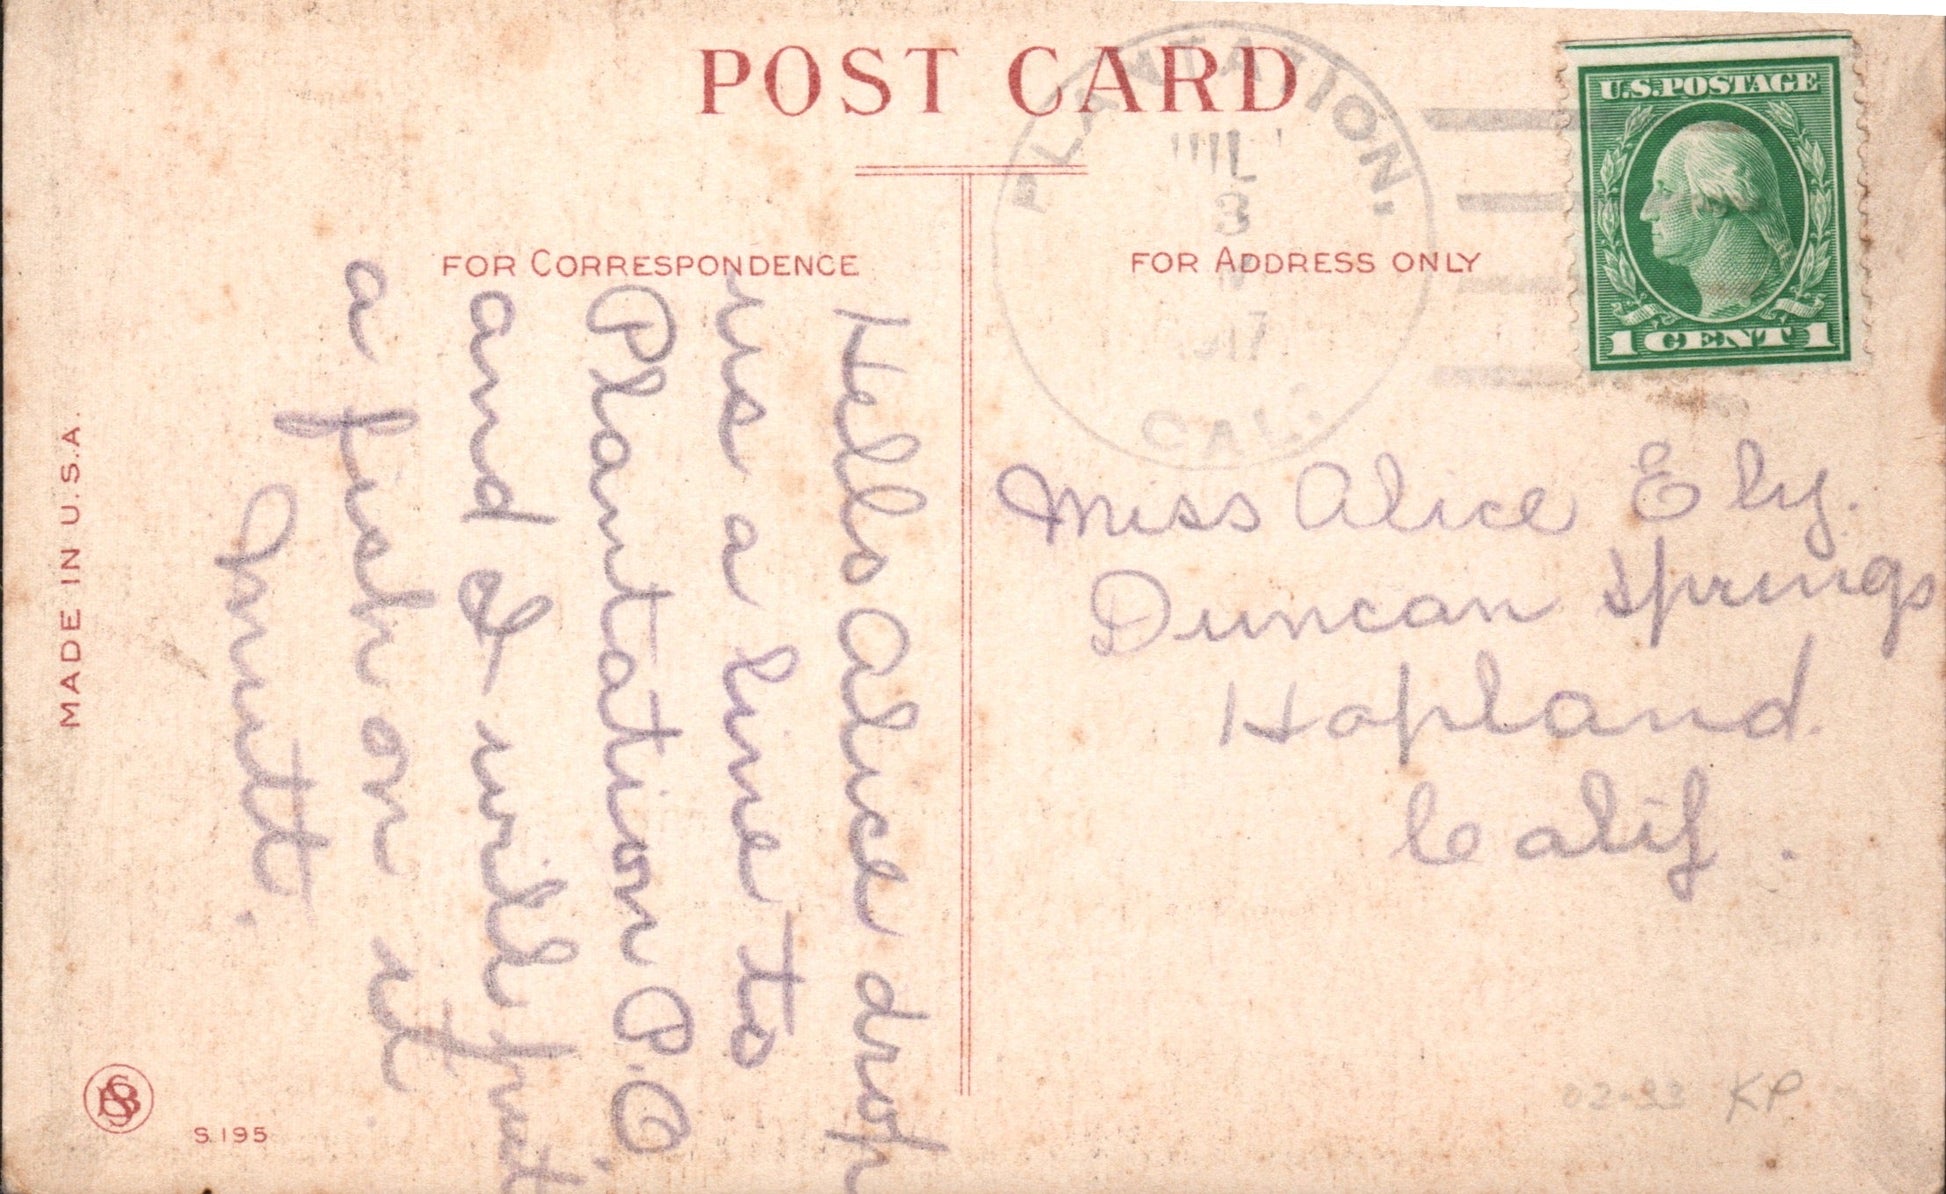 POST CARD
FOR CORRESPONDENCE
FOR ADDRESS ONLY
PLANTATION,
3
1917
CAL.
U.S. POSTAGE
1 CENT 1
Hello Alice drop
us a line to
Plantation P.O.
and I will put
a fish on it.
Miss Alice Ely.
Duncan Springs
Hopland.
Calif.
MADE IN U.S.A.
S.195
KP